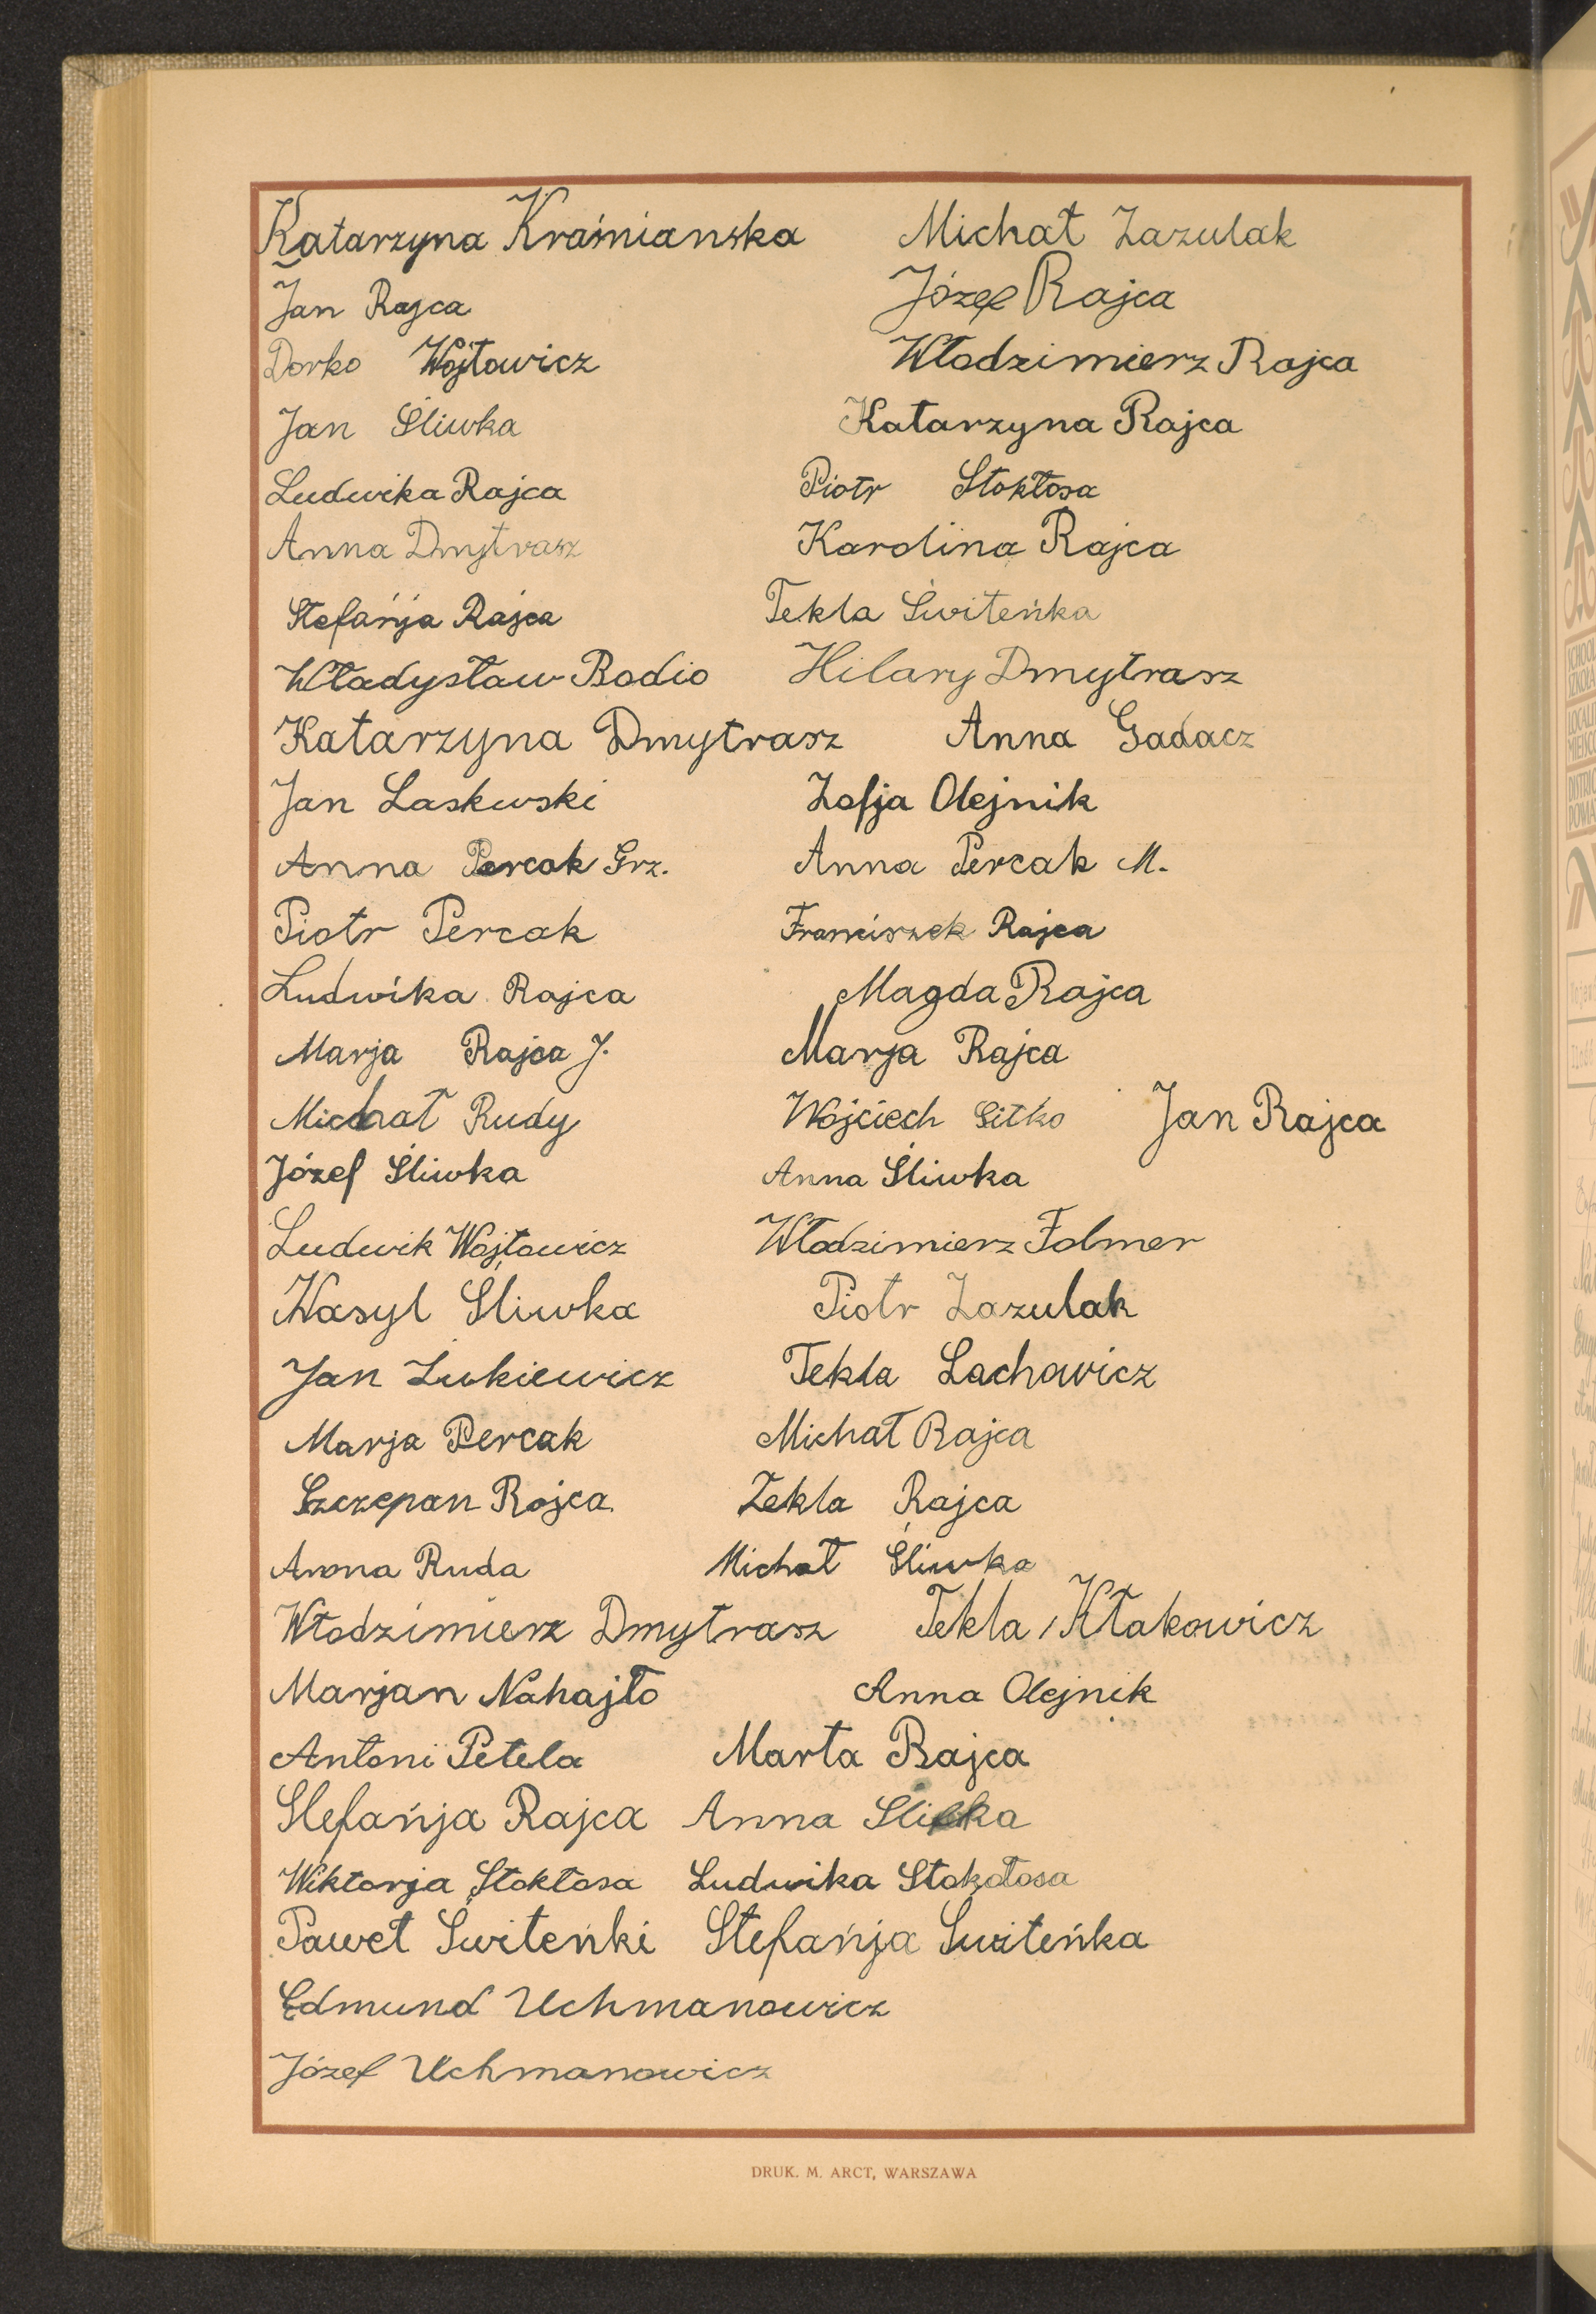 Katarzyna Kraśnianska Michał Zazulak
Jan Rajca Józef Rajca
Dorko Wojtowicz Włodzimierz Rajca
Jan Śliwka Katarzyna Rajca
Ludwika Rajca Piotr Stokłosa
Anna Dmytrasz Karolina Rajca
Stefańja Rajca Tekla Świteńka
Władysław Bodio Hilary Dmytrasz
Katarzyna Dmytrasz Anna Gadacz
Jan Laskwski Zofja Olejnik
Anna Percak Grz. Anna Percak M.
Piotr Percak Franciszek Rajca
Ludwika Rajca Magda Rajca
Marja Rajca J. Marja Rajca
Michał Rudy Wojciech Sitko Jan Rajca
Józef Śliwka Anna Śliwka
Ludwik Wojtowicz Włodzimierz Folmer
Wasyl Śliwka Piotr Zazulak
Jan Żukiewicz Tekla Lachowicz
Marja Percak Michał Rajca
Szczepan Rojca Tekla Rajca
Anna Ruda Michał Śliwka
Włodzimierz Dmytrasz Tekla Kłakowicz
Marjan Nahajło Anna Olejnik
Antoni Petela Marta Rajca
Stefańja Rajca Anna
Wiktorja Stokłosa Ludwika Stokołosa
Paweł Świteńki Stefańja Świteńka
Edmund Uchmanowicz
Józef Uchmanowicz
DRUK. M. ARCT, WARSZAWA